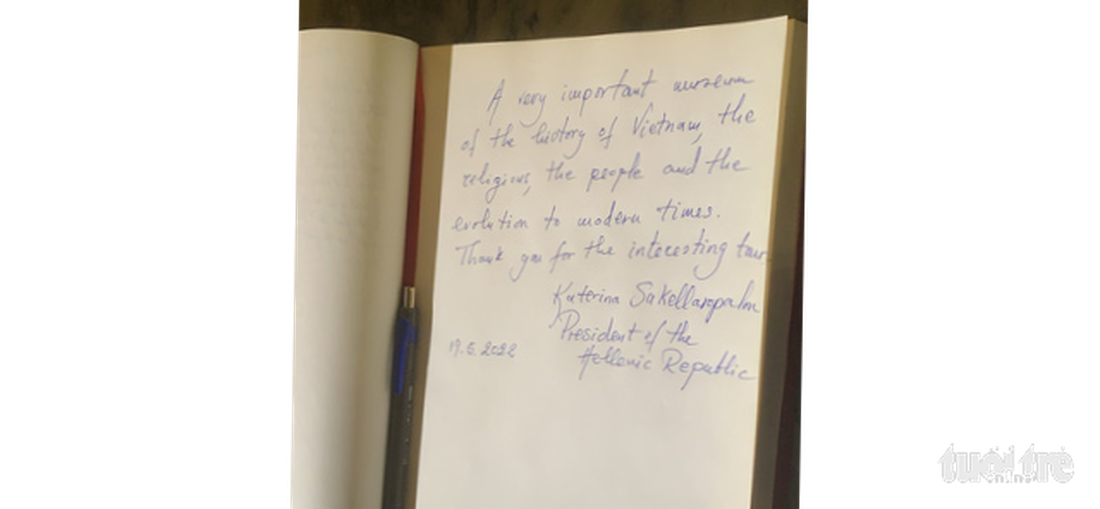 A very important museum
of the history of Vietnam, the
religions, the people and the
evolution to modern times.
Thank you for the interesting tour.
Katerina Sakellaropoulou
President of the
Hellenic Republic
19.5.2022
tuổi trẻ
online